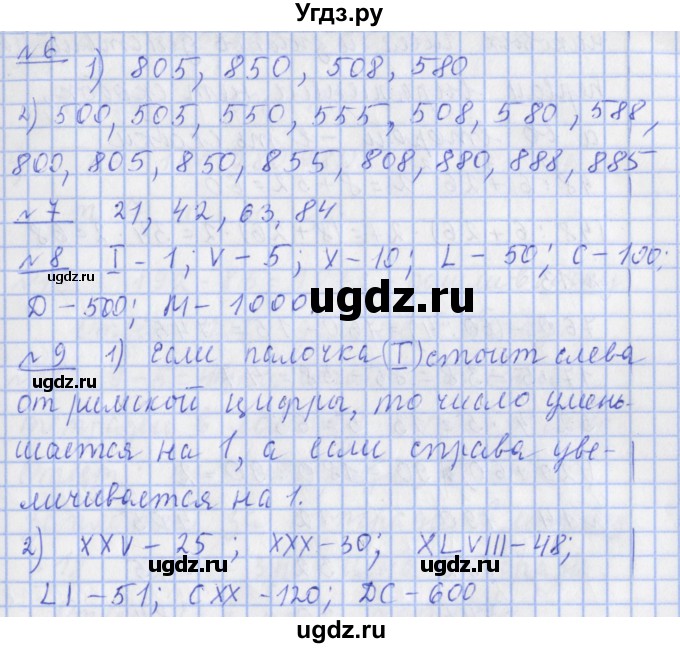 Угдз.ру
№6 1) 805, 850, 508, 580
2) 500, 505, 550, 555, 508, 580, 588,
800, 805, 850, 855, 808, 880, 888, 885
№7 21, 42, 63, 84
№8 I - 1; V - 5; X - 10; L - 50; C - 100;
ugdz.ru
D - 500; M - 1000
ugdz.ru
№9 1) Если палочка (I) стоит слева
ugdz.ru
от римской цифры, то число умень-
шается на 1, а если справа уве-
личивается на 1.
2) XXV - 25; XXX - 30; XLVIII - 48;
ugdz.ru ugdz.ru
LI - 51; CXX - 120; DC - 600
ugdz.ru